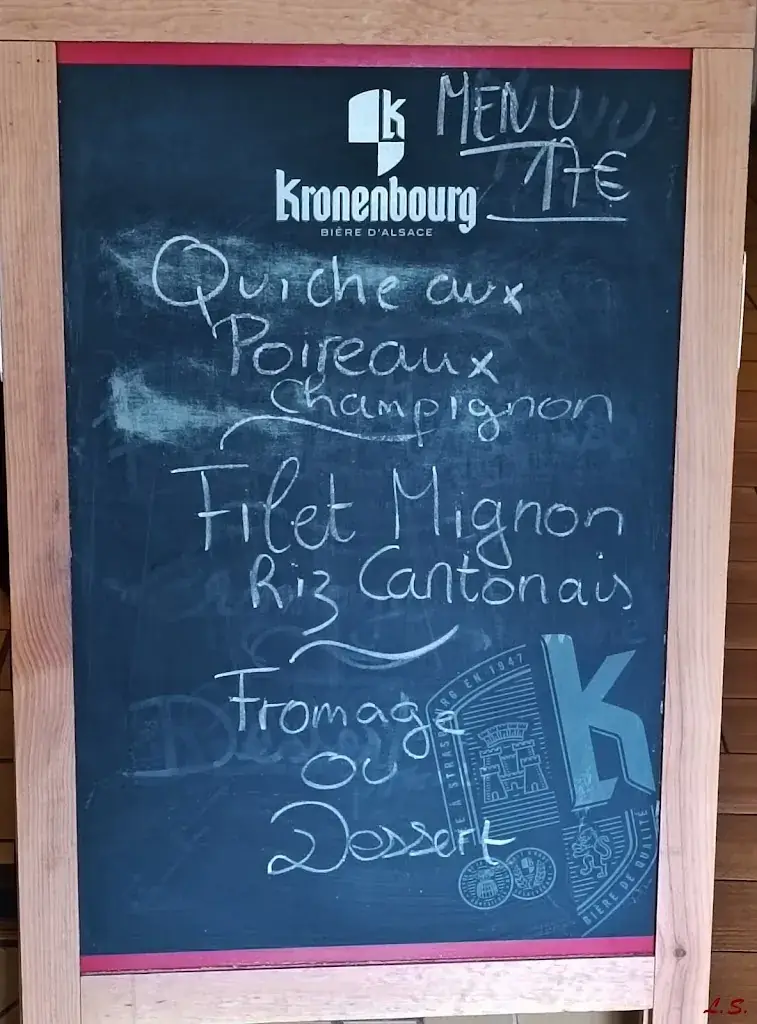 MENU
17€
k
Kronenbourg
BIÈRE D'ALSACE
Quiche aux
Poireaux
Champignon
Filet Mignon
Riz Cantonais
Fromage
ou
Dessert
K
BIÈRE DE QUALITÉ
L.S.